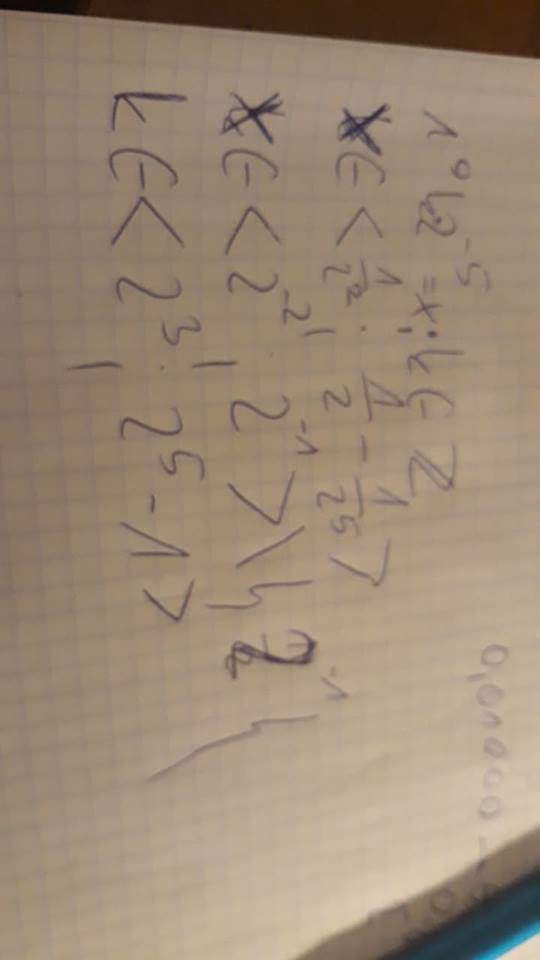 0,01000
1° k2^-5 = x; k ∈ ℤ
x ∈ < 1/2^2 ; 1/2 - 1/2^5 >
x ∈ < 2^-2 ; 2^-1 > \ { 2^-1 }
k ∈ < 2^3 ; 2^5 - 1 >